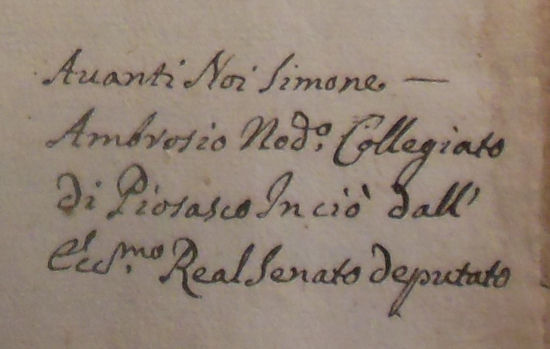 Avanti Noi Simone —
Ambrosio Nod.º Collegiato
di Piosasco In ciò dall'
Ecc.mo Real Senato deputato